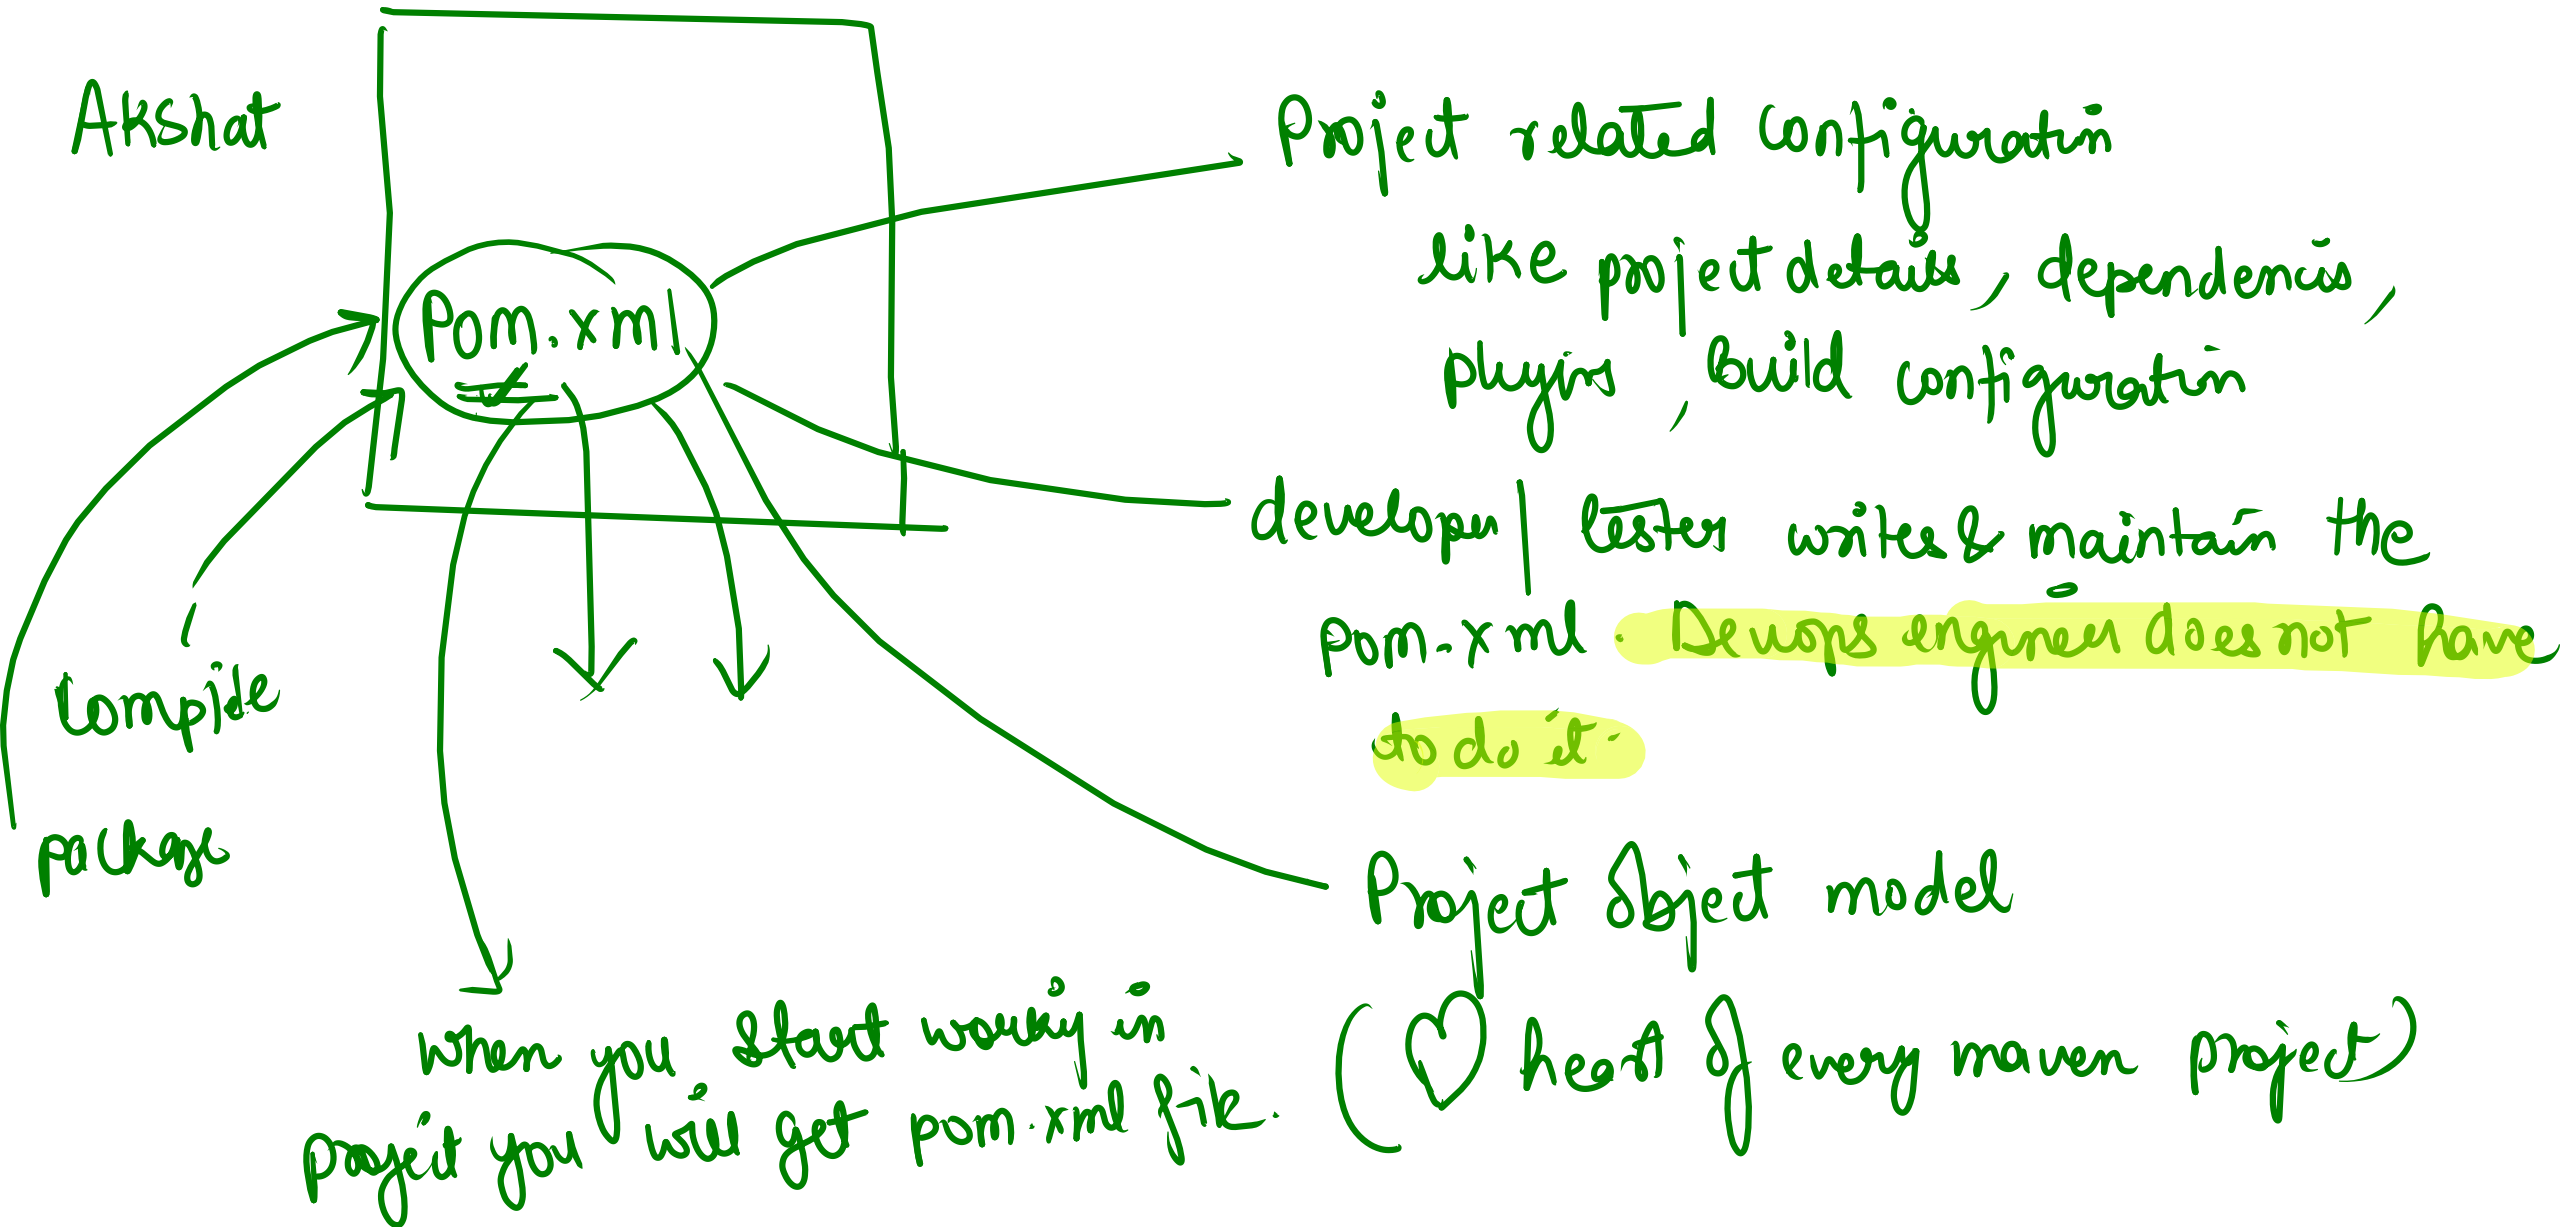 Akshat
Pom.xml
Compile
package
Project related configuration
like project details, dependencies,
plugins, Build configuration
developer/tester writes & maintain the
pom.xml. Devops engineer does not have
to do it.
Project Object model
(♡ heart of every maven project)
when you start working in
project you will get pom.xml file.